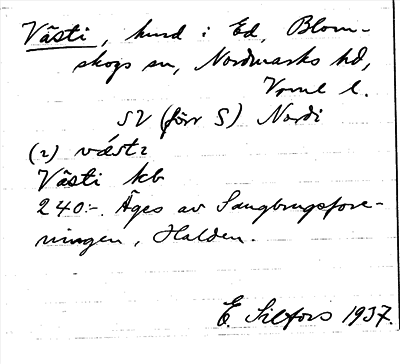 Västi, hmd i Ed, Blom-
skogs sn, Nordmarks hd,
Vrml l.
SV (förr S) Nordi
(2) västɩ
Västi kb
240:-. Äges av Saugbrugsfore-
ningen, Halden.
E. Silfors 1937.